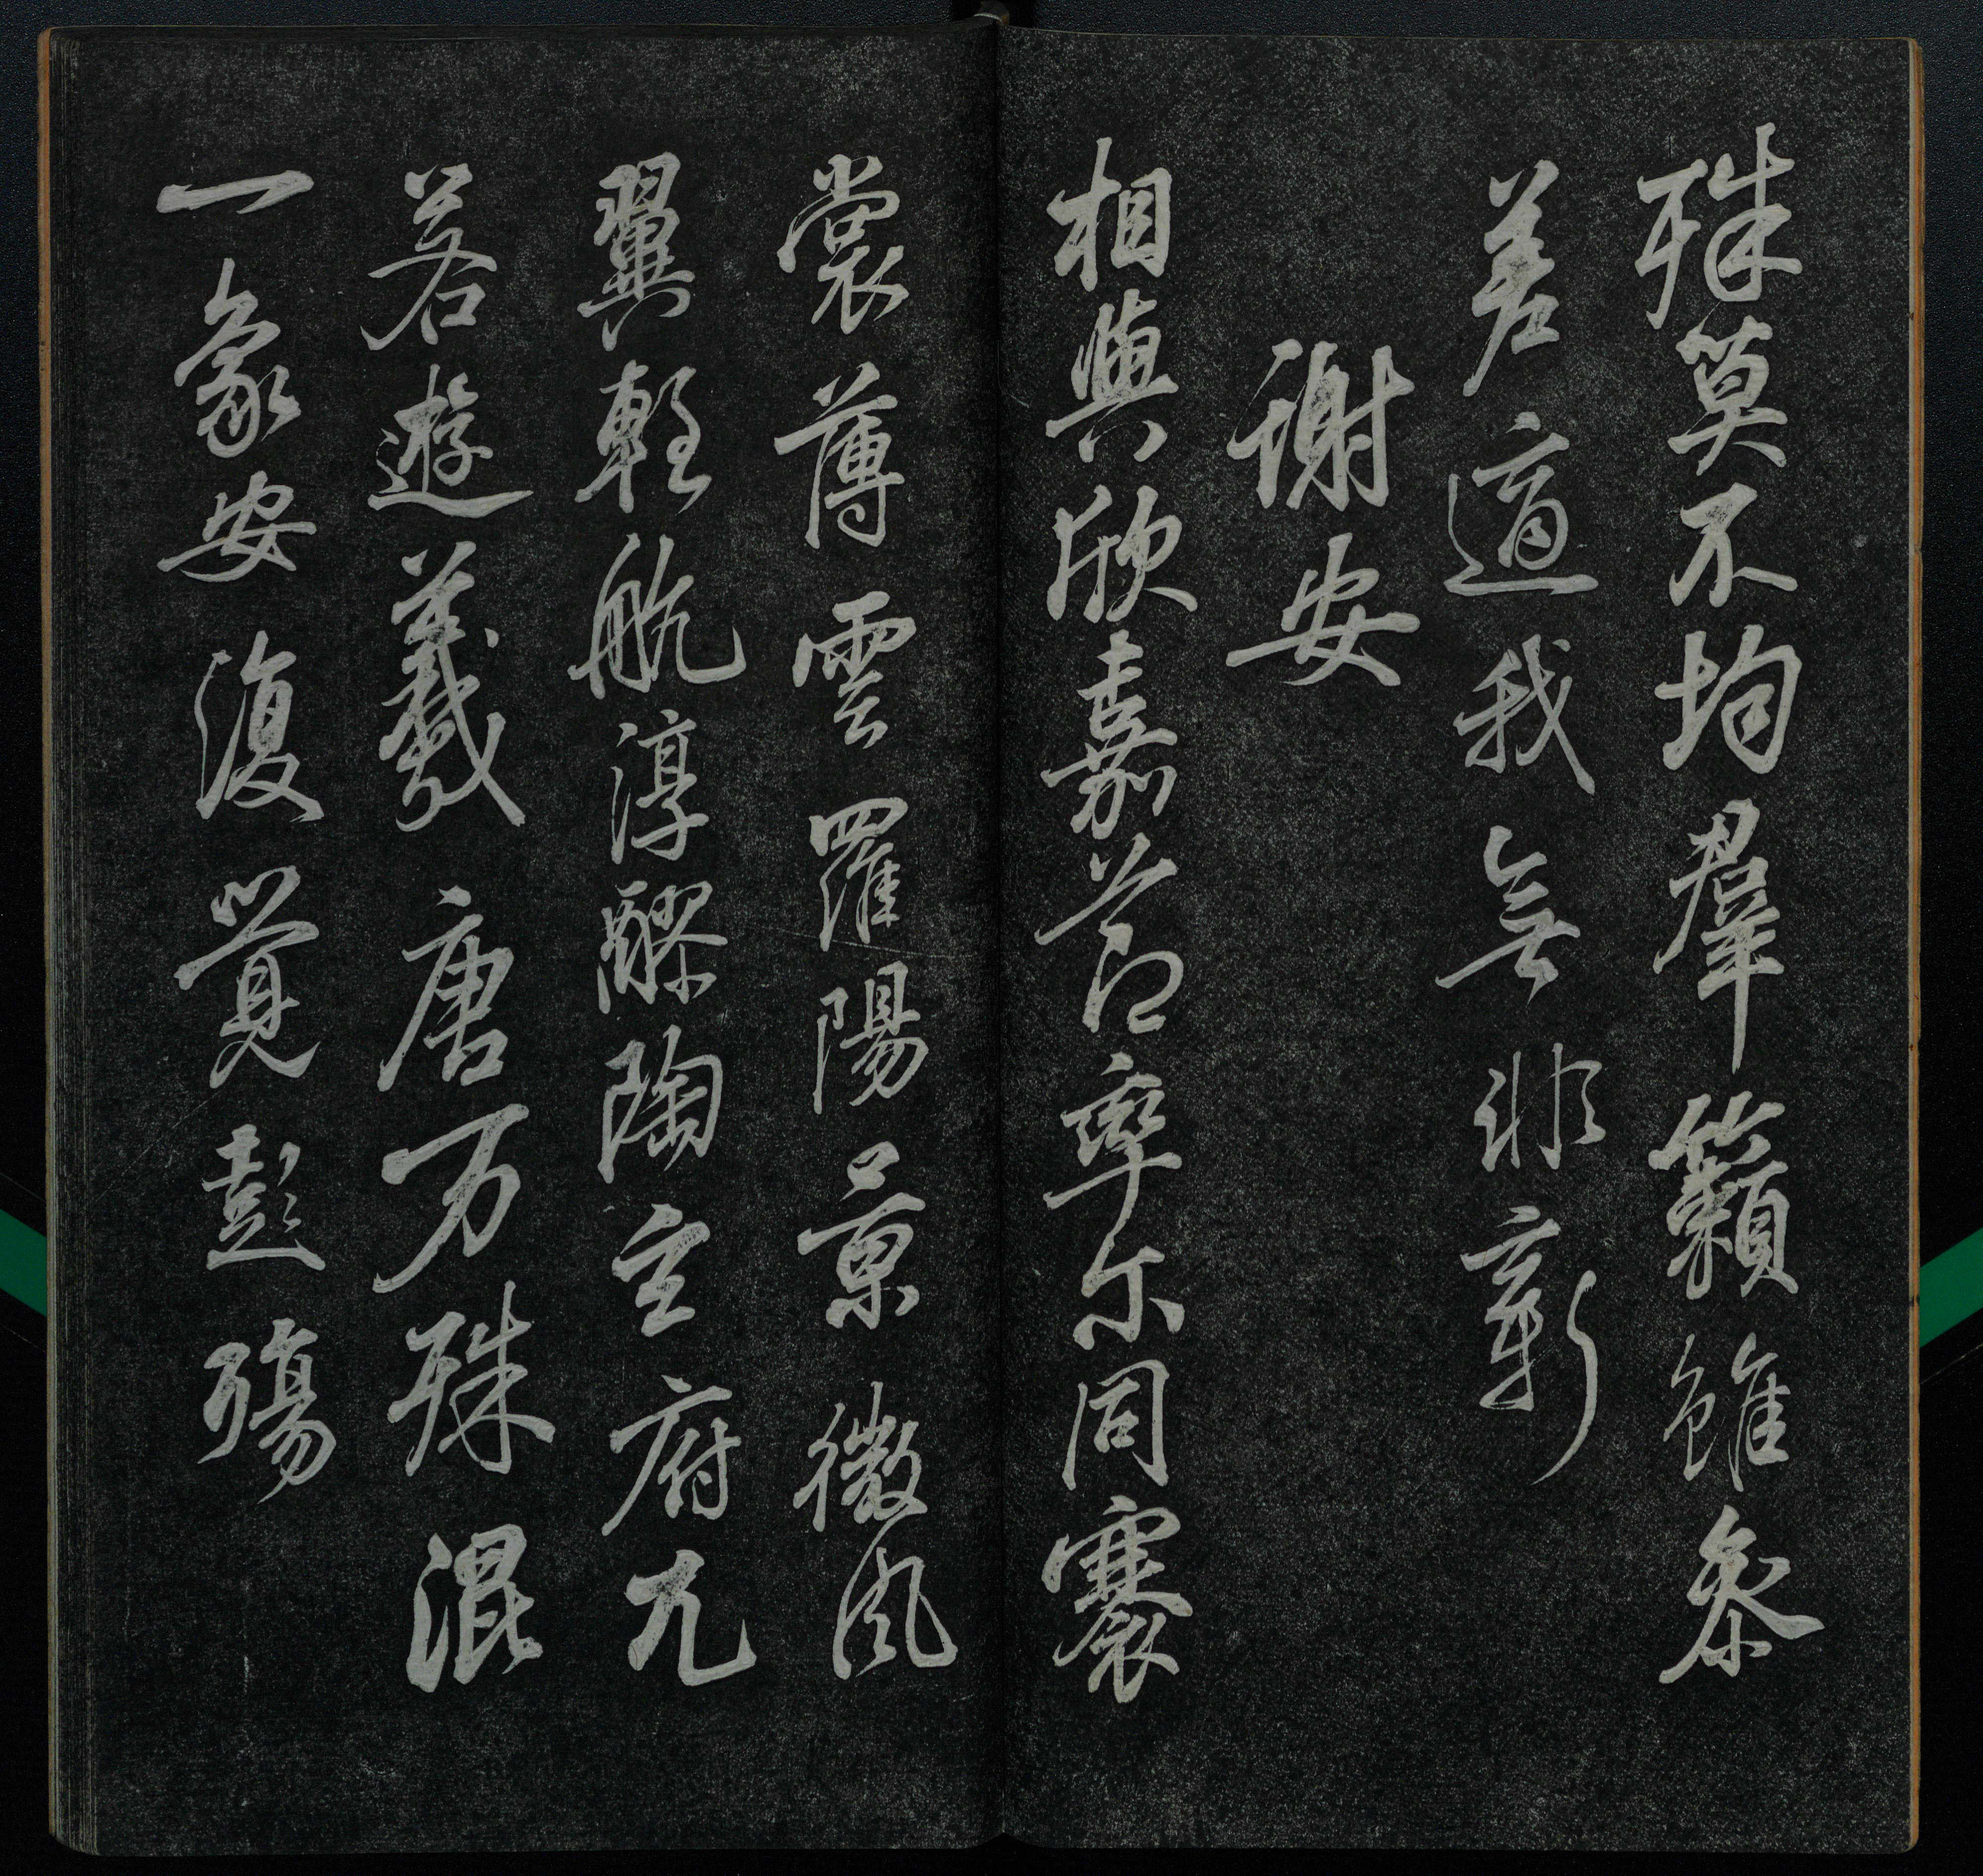 殊莫不均羣籟雖叅
差適我無非新
謝安
相與欣嘉節率尔同褰
裳薄雲羅陽景微風
翼輕航淳醪陶玄府兀
若遊羲唐万殊混
一象安復覺彭殤